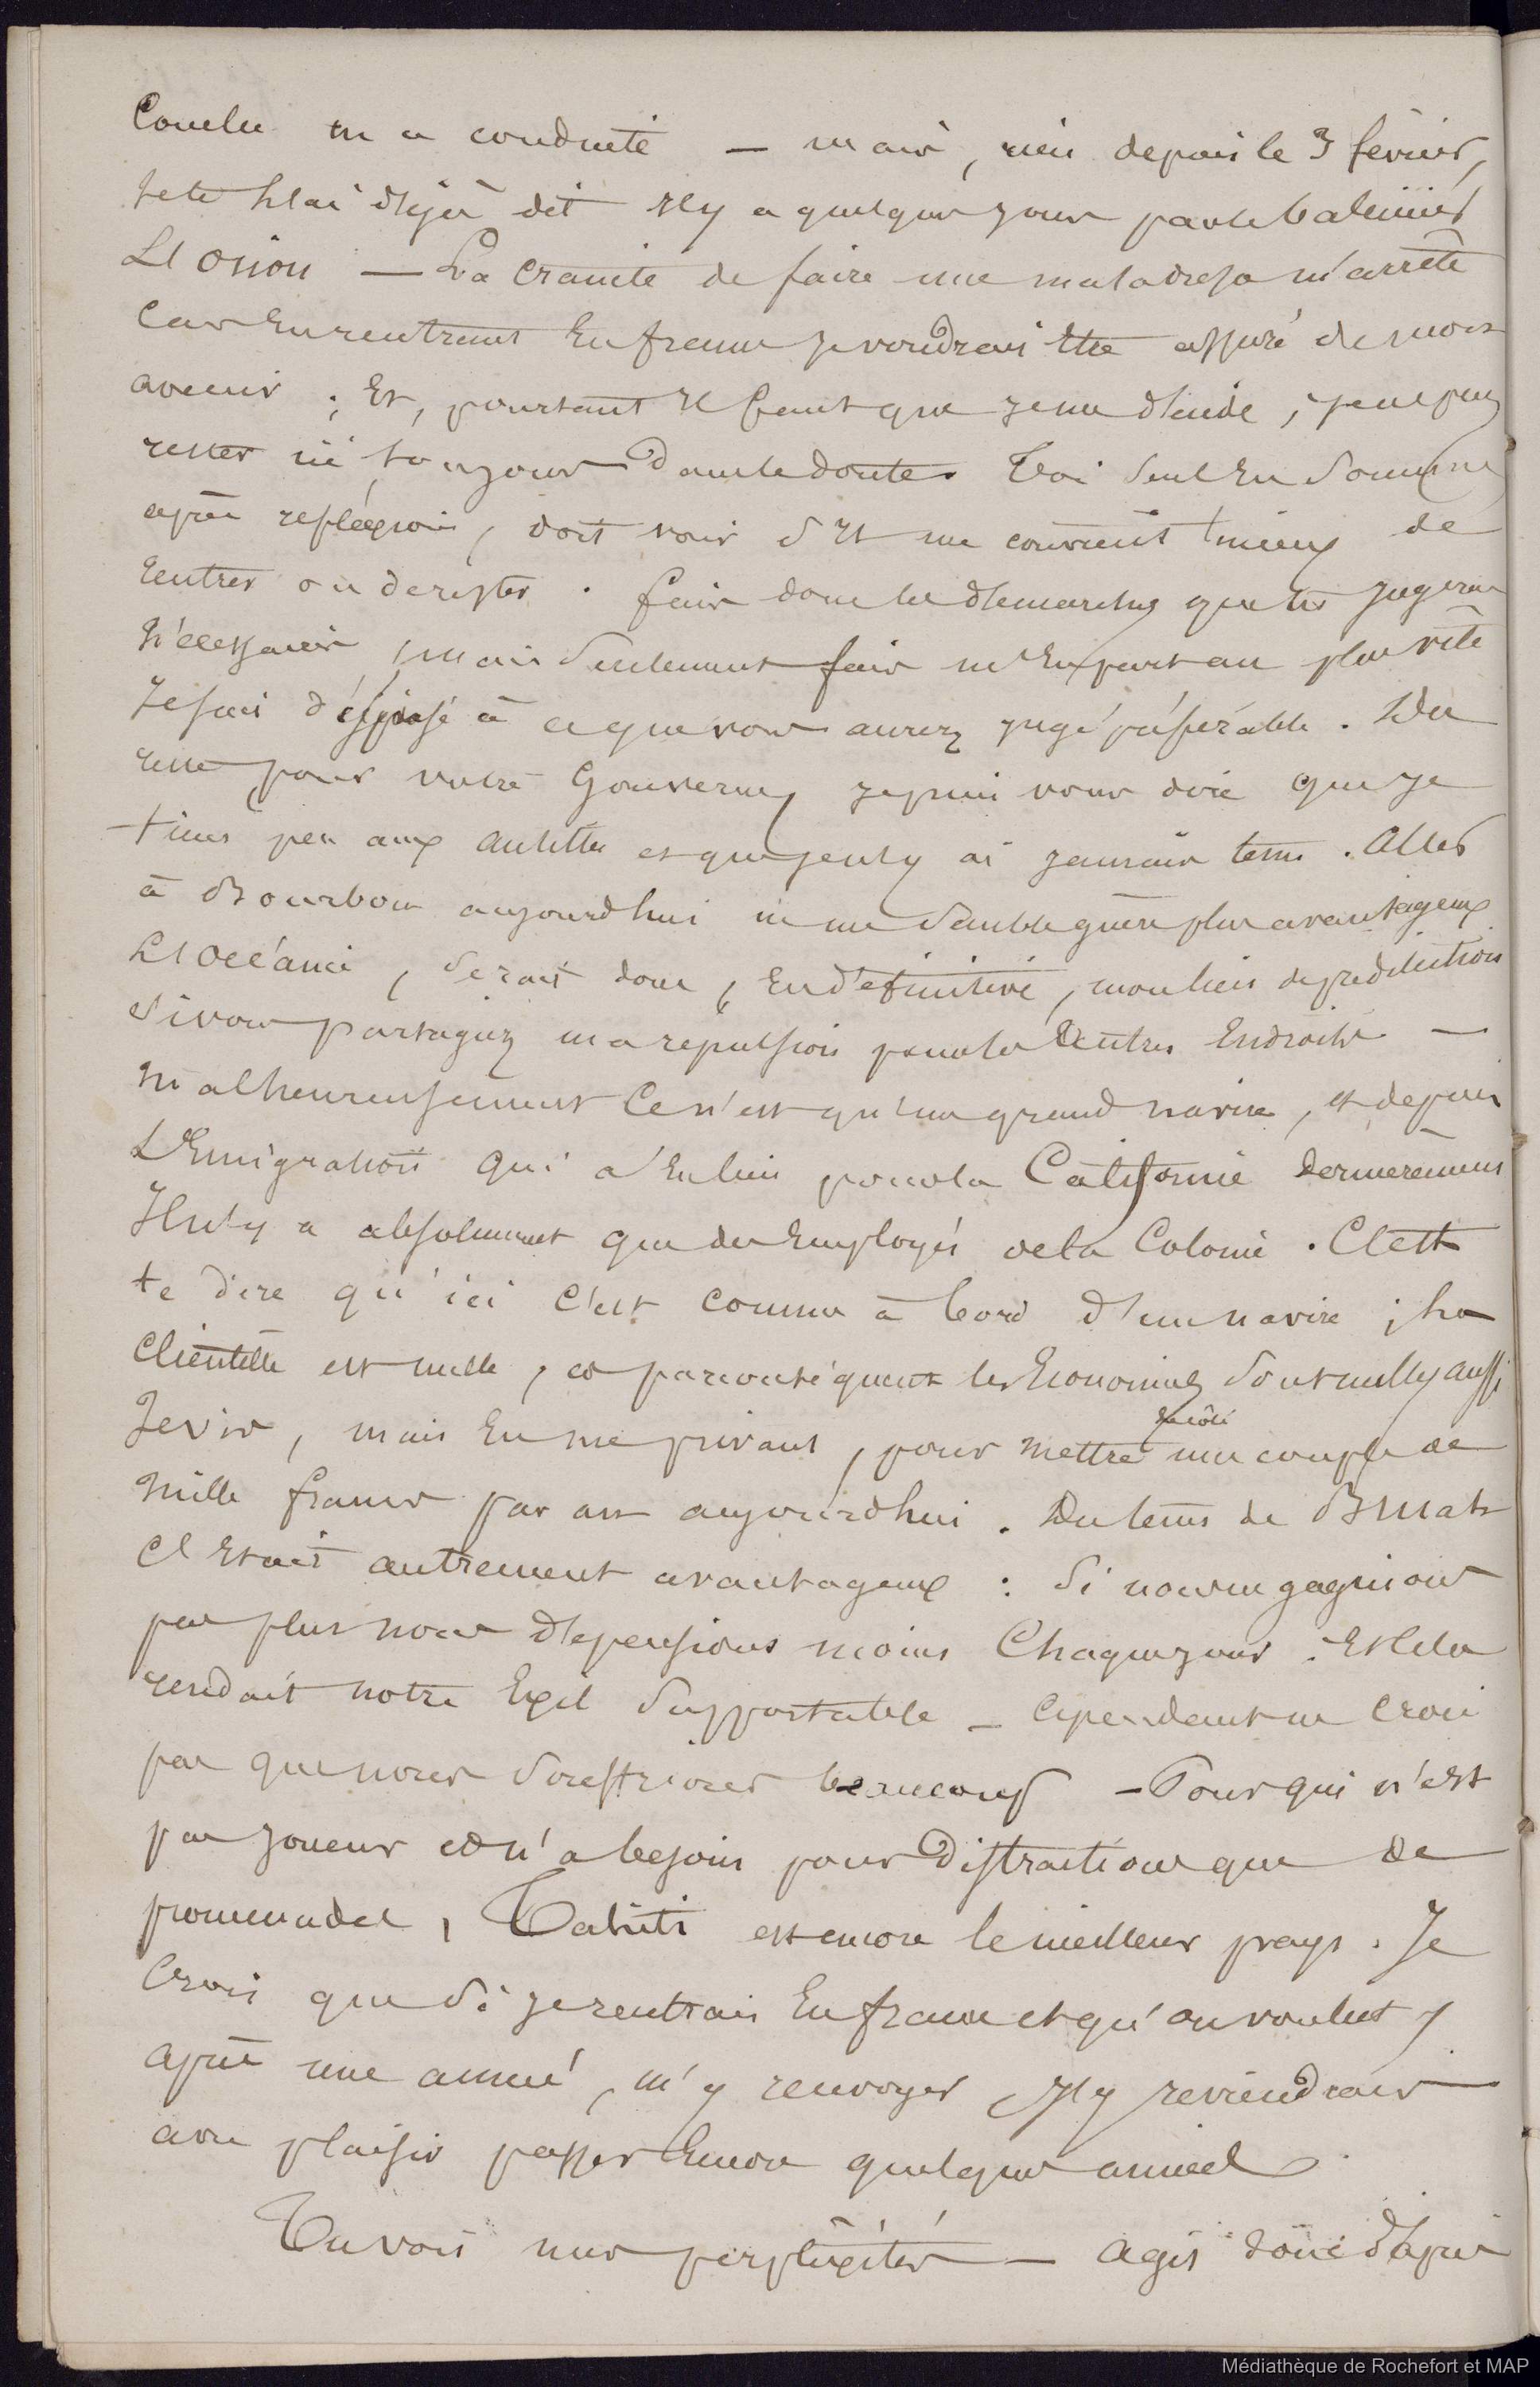 Conclu ma conduite — mais, rien depuis le 3 février,
Je te l'ai déjà dit Il y a quelques jours par le baleinier
L'Orion — La Crainte de faire une maladresse m'arrête
Car En rentrant En france Je voudrais être assuré de mon
avenir ; Et, pourtant Il faut que Je me décide, Je ne puis
rester ici toujours dans le doute. Toi seul En somme
après réflexion, doit voir s'Il me convient mieux de
rentrer ou de rester. fais donc les démarches que tu Jugeras
Nécessaires, mais seulement fais m'En part au plus vite
Je suis disposé à ce que vous aurez jugé préférable. Du
reste pour votre Gouverne, Je puis vous dire que Je
tiens peu aux Antilles et que Je n'y ai Jamais tenu. Aller
à Bourbon aujourd'hui ne me semble guère plus avantageux
L'Océanie, serait donc, En définitive, mon lieu de prédilection
Si vous partagiez ma répulsion pour les Autres Endroits —
Malheureusement Ce n'est qu'un grand navire, et depuis
L'Emigration qui a Eu lieu pour la Californie dernièrement
Il n'y a absolument que des Employés de la Colonie. C'est
te dire qu'ici C'est comme à bord d'un navire ; la
Clientelle est nulle, et par conséquent les Economies sont nulles aussi
Je vis, mais En me privant, pour mettre de côté une couple de
Mille francs par an aujourd'hui. Du tems de Bruat
C'Etait autrement avantageux : Si nous ne gagnions
pas plus nous dépensions moins Chaque jour. Et Cela
rendait notre Exil supportable — Cependant ne Crois
pas que nous souffrions beaucoup — Pour qui n'est
pas Joueur et n'a besoin pour Distractions que de
promenades, Tahiti est encore le meilleur pays. Je
Crois que si je rentrais En france et qu'on voulut,
après une année, m'y renvoyer, J'y reviendrais
avec plaisir passer Encore quelques années.
Tu vois mes perplexités — Agis donc d'après
Médiathèque de Rochefort et MAP